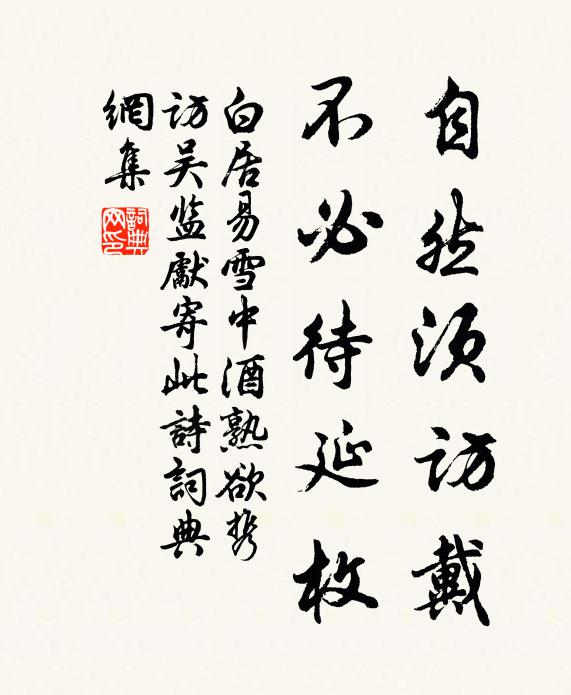 自然须访戴
不必待延枚
白居易雪中酒熟欲携
访吴监獻寄此詩詞典
網集
詞典网印